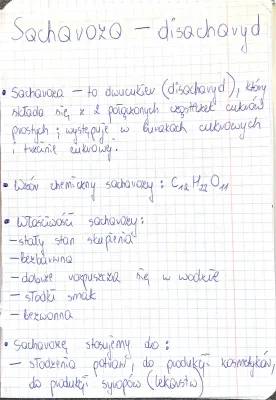 Sacharoza – disacharyd
• Sacharoza – to dwucukier (disacharyd), który
składa się z 2 połączonych cząsteczek cukrów
prostych; występuje w burakach cukrowych
i trzcinie cukrowej.
• Wzór chemiczny sacharozy: C₁₂H₂₂O₁₁
• Właściwości sacharozy:
– stały stan skupienia
– bezbarwna
– dobrze rozpuszcza się w wodzie
– słodki smak
– bezwonna
• Sacharozę stosujemy do:
– słodzenia potraw, do produkcji kosmetyków,
do produkcji syropów (lekarstw)